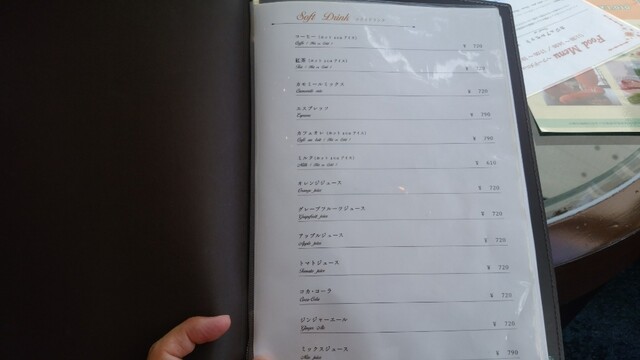 Soft Drink
コーヒー (ホット or アイス)
¥ 720
紅茶 (ホット or アイス)
カモミールミックス
¥ 720
エスプレッソ
Espresso
¥ 790
カフェオレ (ホット or アイス)
¥ 790
ミルク (ホット or アイス)
¥ 610
オレンジジュース
Orange juice
¥ 720
グレープフルーツジュース
Grapefruit juice
¥ 720
アップルジュース
Apple juice
¥ 720
トマトジュース
Tomato juice
¥ 720
コカ・コーラ
Coca Cola
¥ 720
ジンジャーエール
Ginger Ale
¥ 720
ミックスジュース
Mix juice
¥ 790
Food Menu